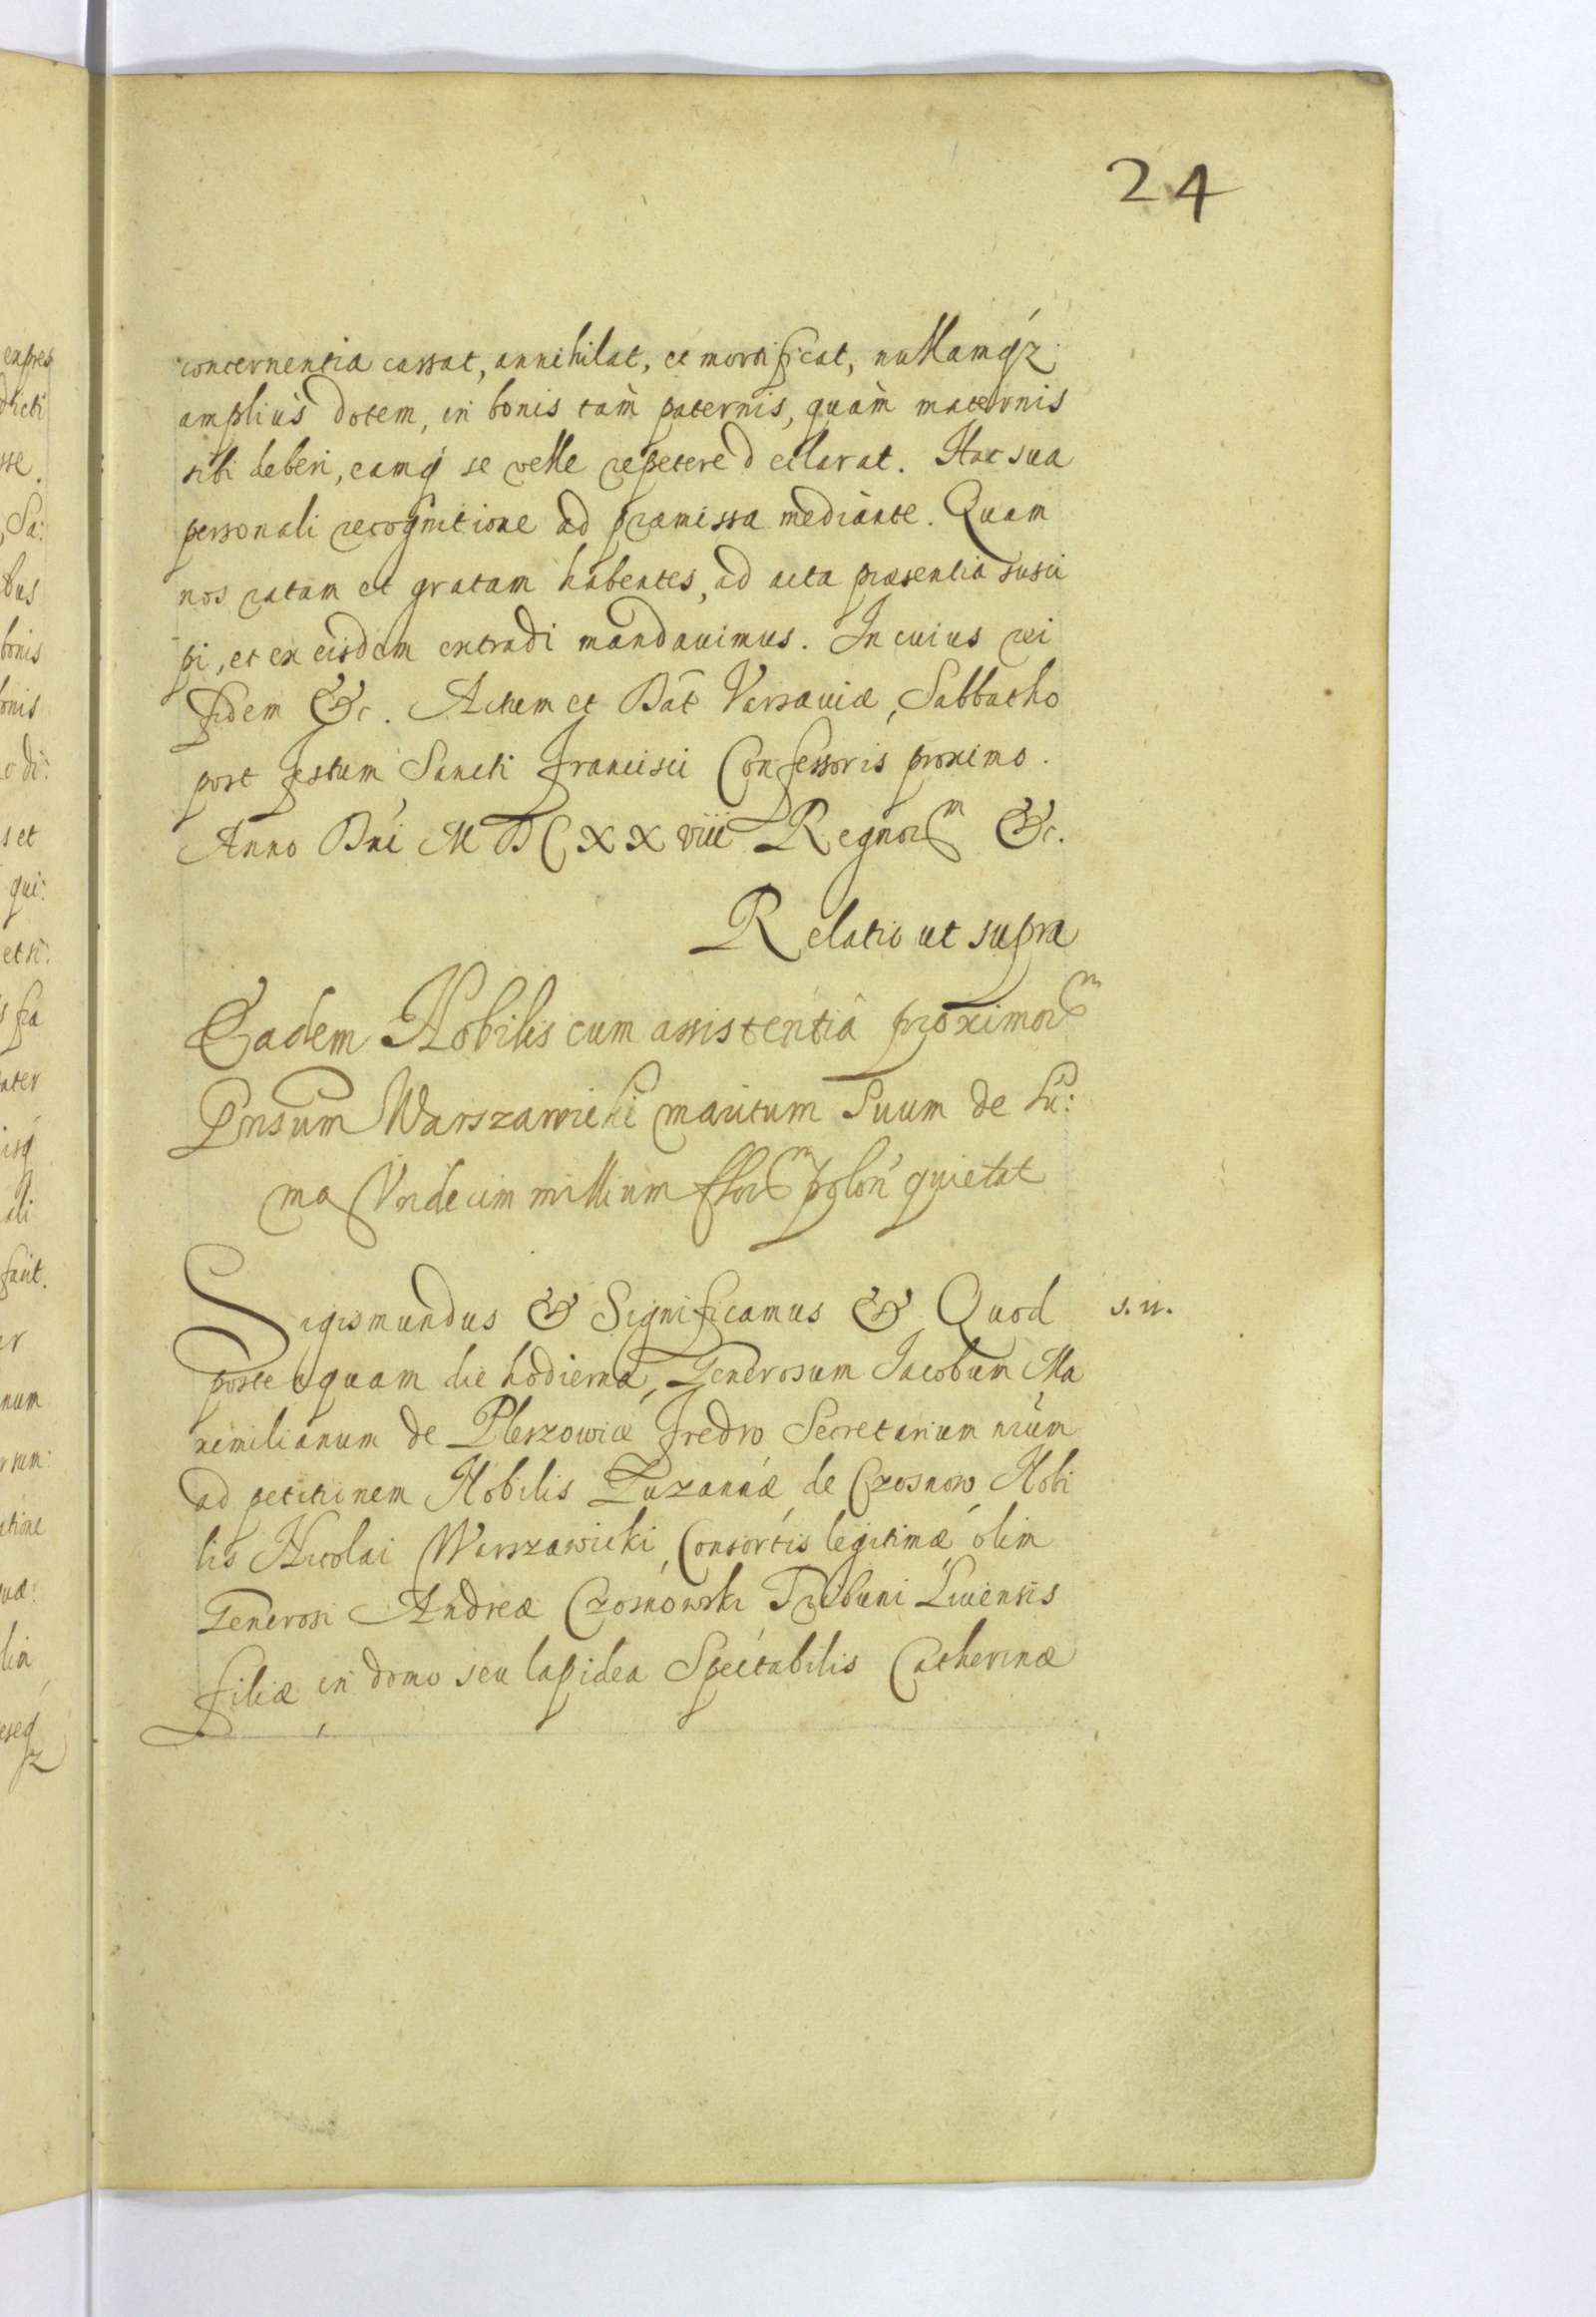 24
concernentia cassat, annihilat, et mortificat, nullamqz
ampliùs dotem, in bonis tàm paternis, quàm maternis
sibi deberi, eamq se velle repetere declarat. Hac sua
personali recognitione ad præmissa mediante. Quam
nos ratam et gratam habentes, ad acta præsentia susci
pi, et ex eisdem extradi mandauimus. In cuius rei
fidem &c. Actum et Dat Varsauiæ, Sabbatho
post festum Sancti Francisci Confessoris proximo.
Anno Dni MDCXXviii Regnorm &c.
Relatio ut supra
Eadem Nobilis cum assistentiâ proximorm
Warszawicki maritum Suum de Su:
ma Vndecim millium florm polon quietat
Sigismundus & Significamus & Quod
s. n.
posteaquam die hodierna, Generosum Jacobum Ma
ximilianum de Pleszowice Fredro Secretarium nrum
ad petitinem Nobilis Zuzannæ de Czosnow Nobi
lis Nicolai Warszawicki, Consortis legitimæ olim
Generosi Andreæ Czosnowski Tribuni Liuensis
filiæ in domo seu lapidea Spectabilis Catherinæ